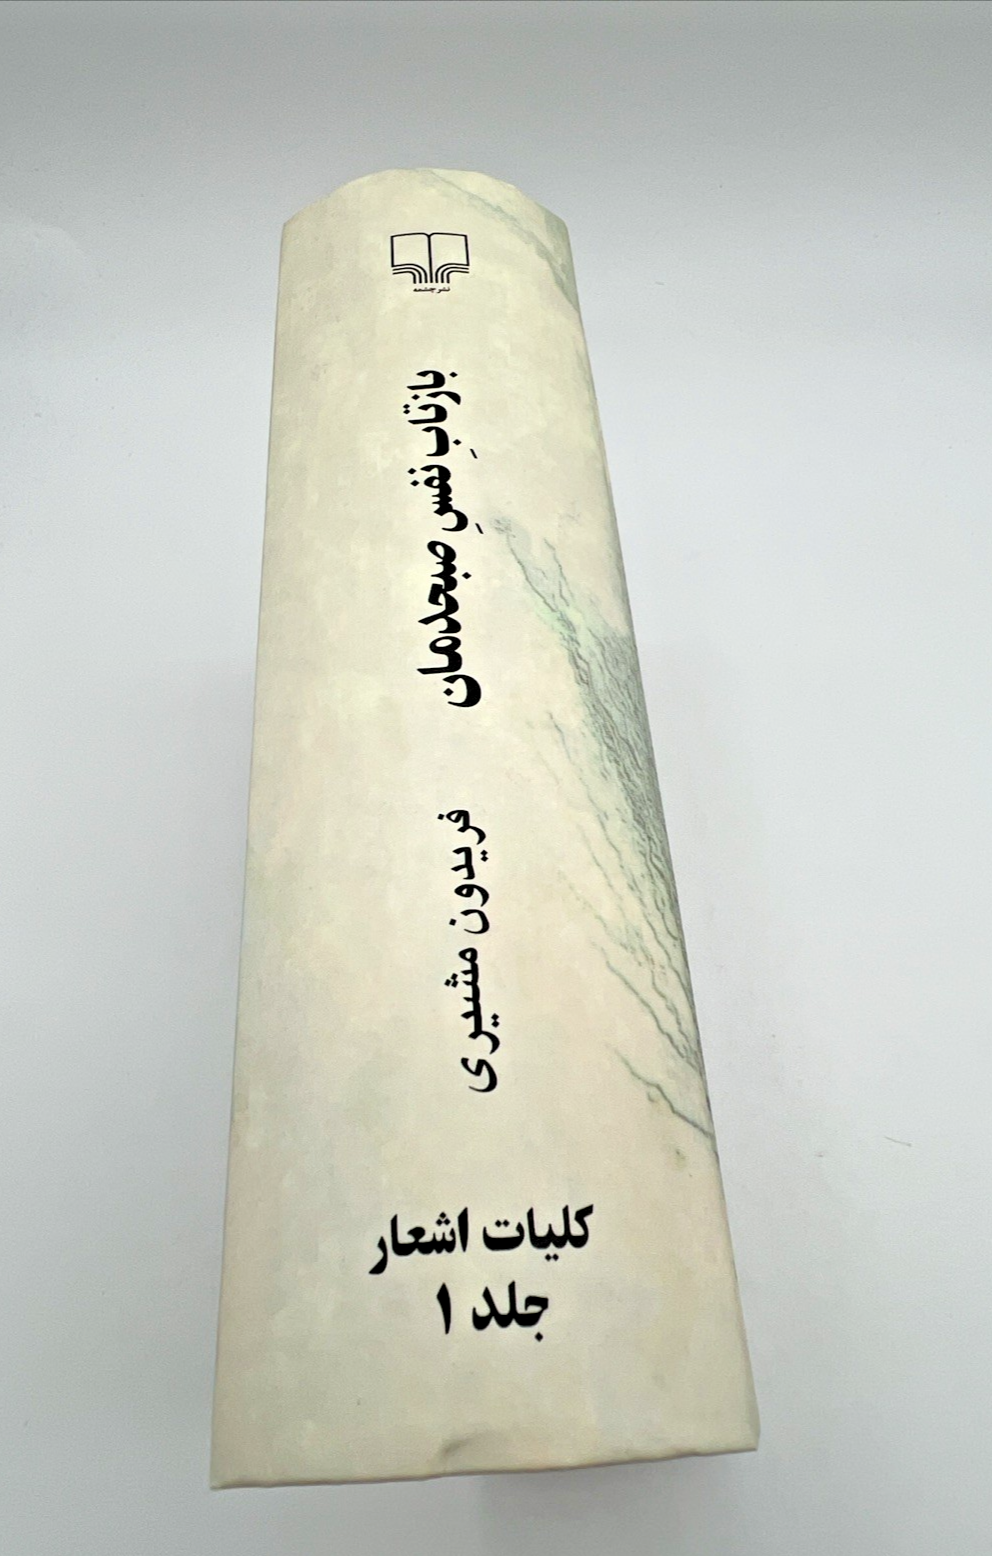 نشر چشمه
بازتابِ نفسِ صبحدمان
فریدون مشیری
کلیات اشعار
جلد ۱